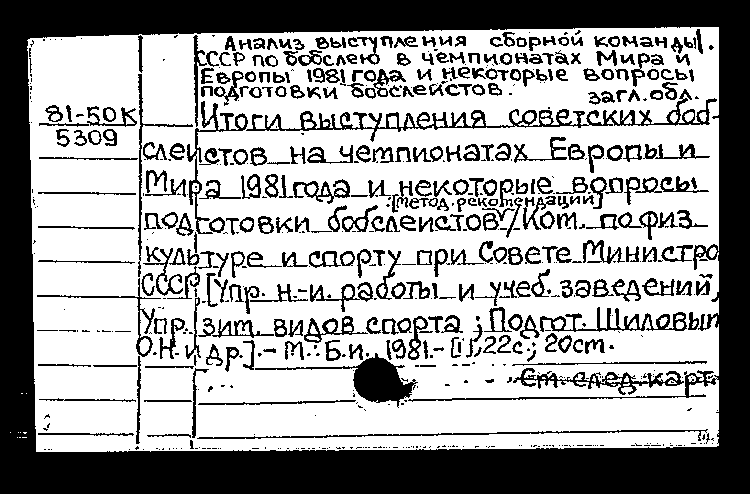 Анализ выступления сборной команды
СССР по бобслею в чемпионатах Мира и
Европы 1981 года и некоторые вопросы
подготовки бобслеистов.
загл. обл.
81-50К
5309
Итоги выступления советских боб-
слеистов на чемпионатах Европы и
Мира 1981 года и некоторые вопросы
:[метод. рекомендации]
подготовки бобслеистов / Ком. по физ.
культуре и спорту при Совете Министро
СССР, [Упр. н.-и. работы и учеб. заведений,
Упр. зим. видов спорта ; Подгот. Шиловым
О.Н. и др.]. - М. : Б.и., 1981. - [1], 22с. ; 20см.
См. след. карт.